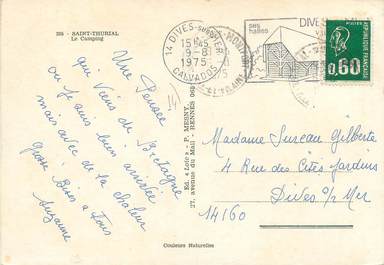 358 - SAINT-THURIAL
Le Camping
14 DIVES-SUR-MER
15H45
9-8
1975
CALVADOS
ses
halles
DIVES
0,60
Une Pensée
qui Viens de Bretagne
ou je suis bien arrivée
mais avec de la chaleur
Grosses Bises a Tous
Suzanne
Ed. « Loïc » - P. MESNY,
27, avenue du Mail - RENNES
Madame Sureau Gilberte
4 Rue des Cités Jardins
Dives s/ Mer
14160
Couleurs Naturelles